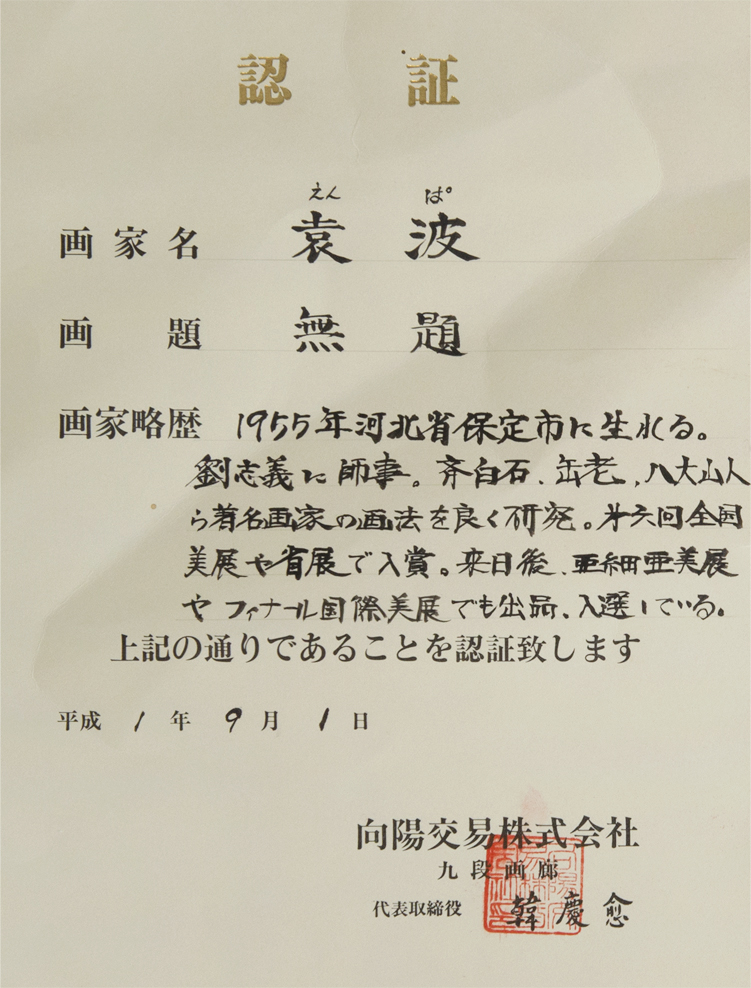 認証
えん ぱ
画家名 袁波
画題 無題
画家略歴 1955年河北省保定市に生れる。
劉志義に師事。斉白石、缶老、八大山人
ら著名画家の画法を良く研究。才六回全国
美展や省展で入賞。来日後、亜細亜美展
やフィナール国際美展でも出品、入選している。
上記の通りであることを認証致します
平成 1 年 9 月 1 日
向陽交易株式会社
九段画廊
代表取締役 韓慶愈